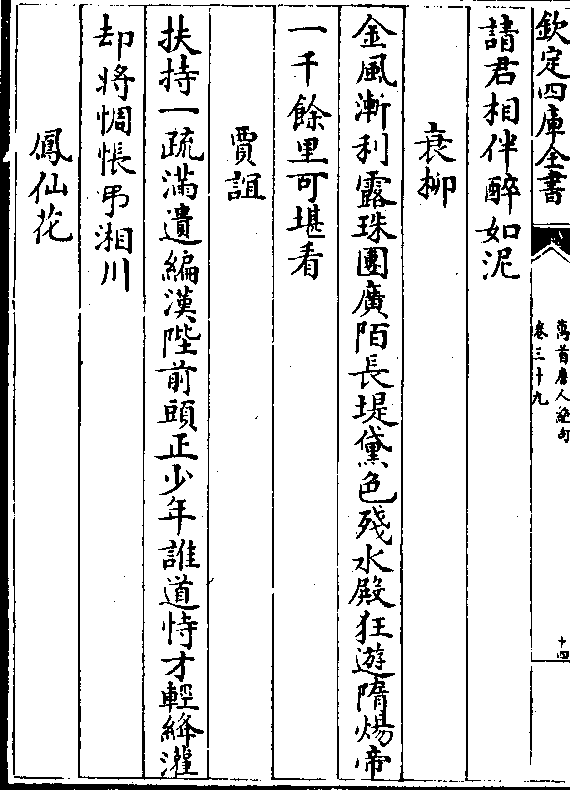 欽定四庫全書
萬首唐人絶句
卷三十九
十四
請君相伴醉如泥
衰栁
金風漸利露珠團廣陌長堤黛色殘水殿狂遊隋煬帝
一千餘里可堪看
賈誼
扶持一疏滿遺編漢陛前頭正少年誰道恃才輕絳灌
却將惆悵弔湘川
鳳仙花